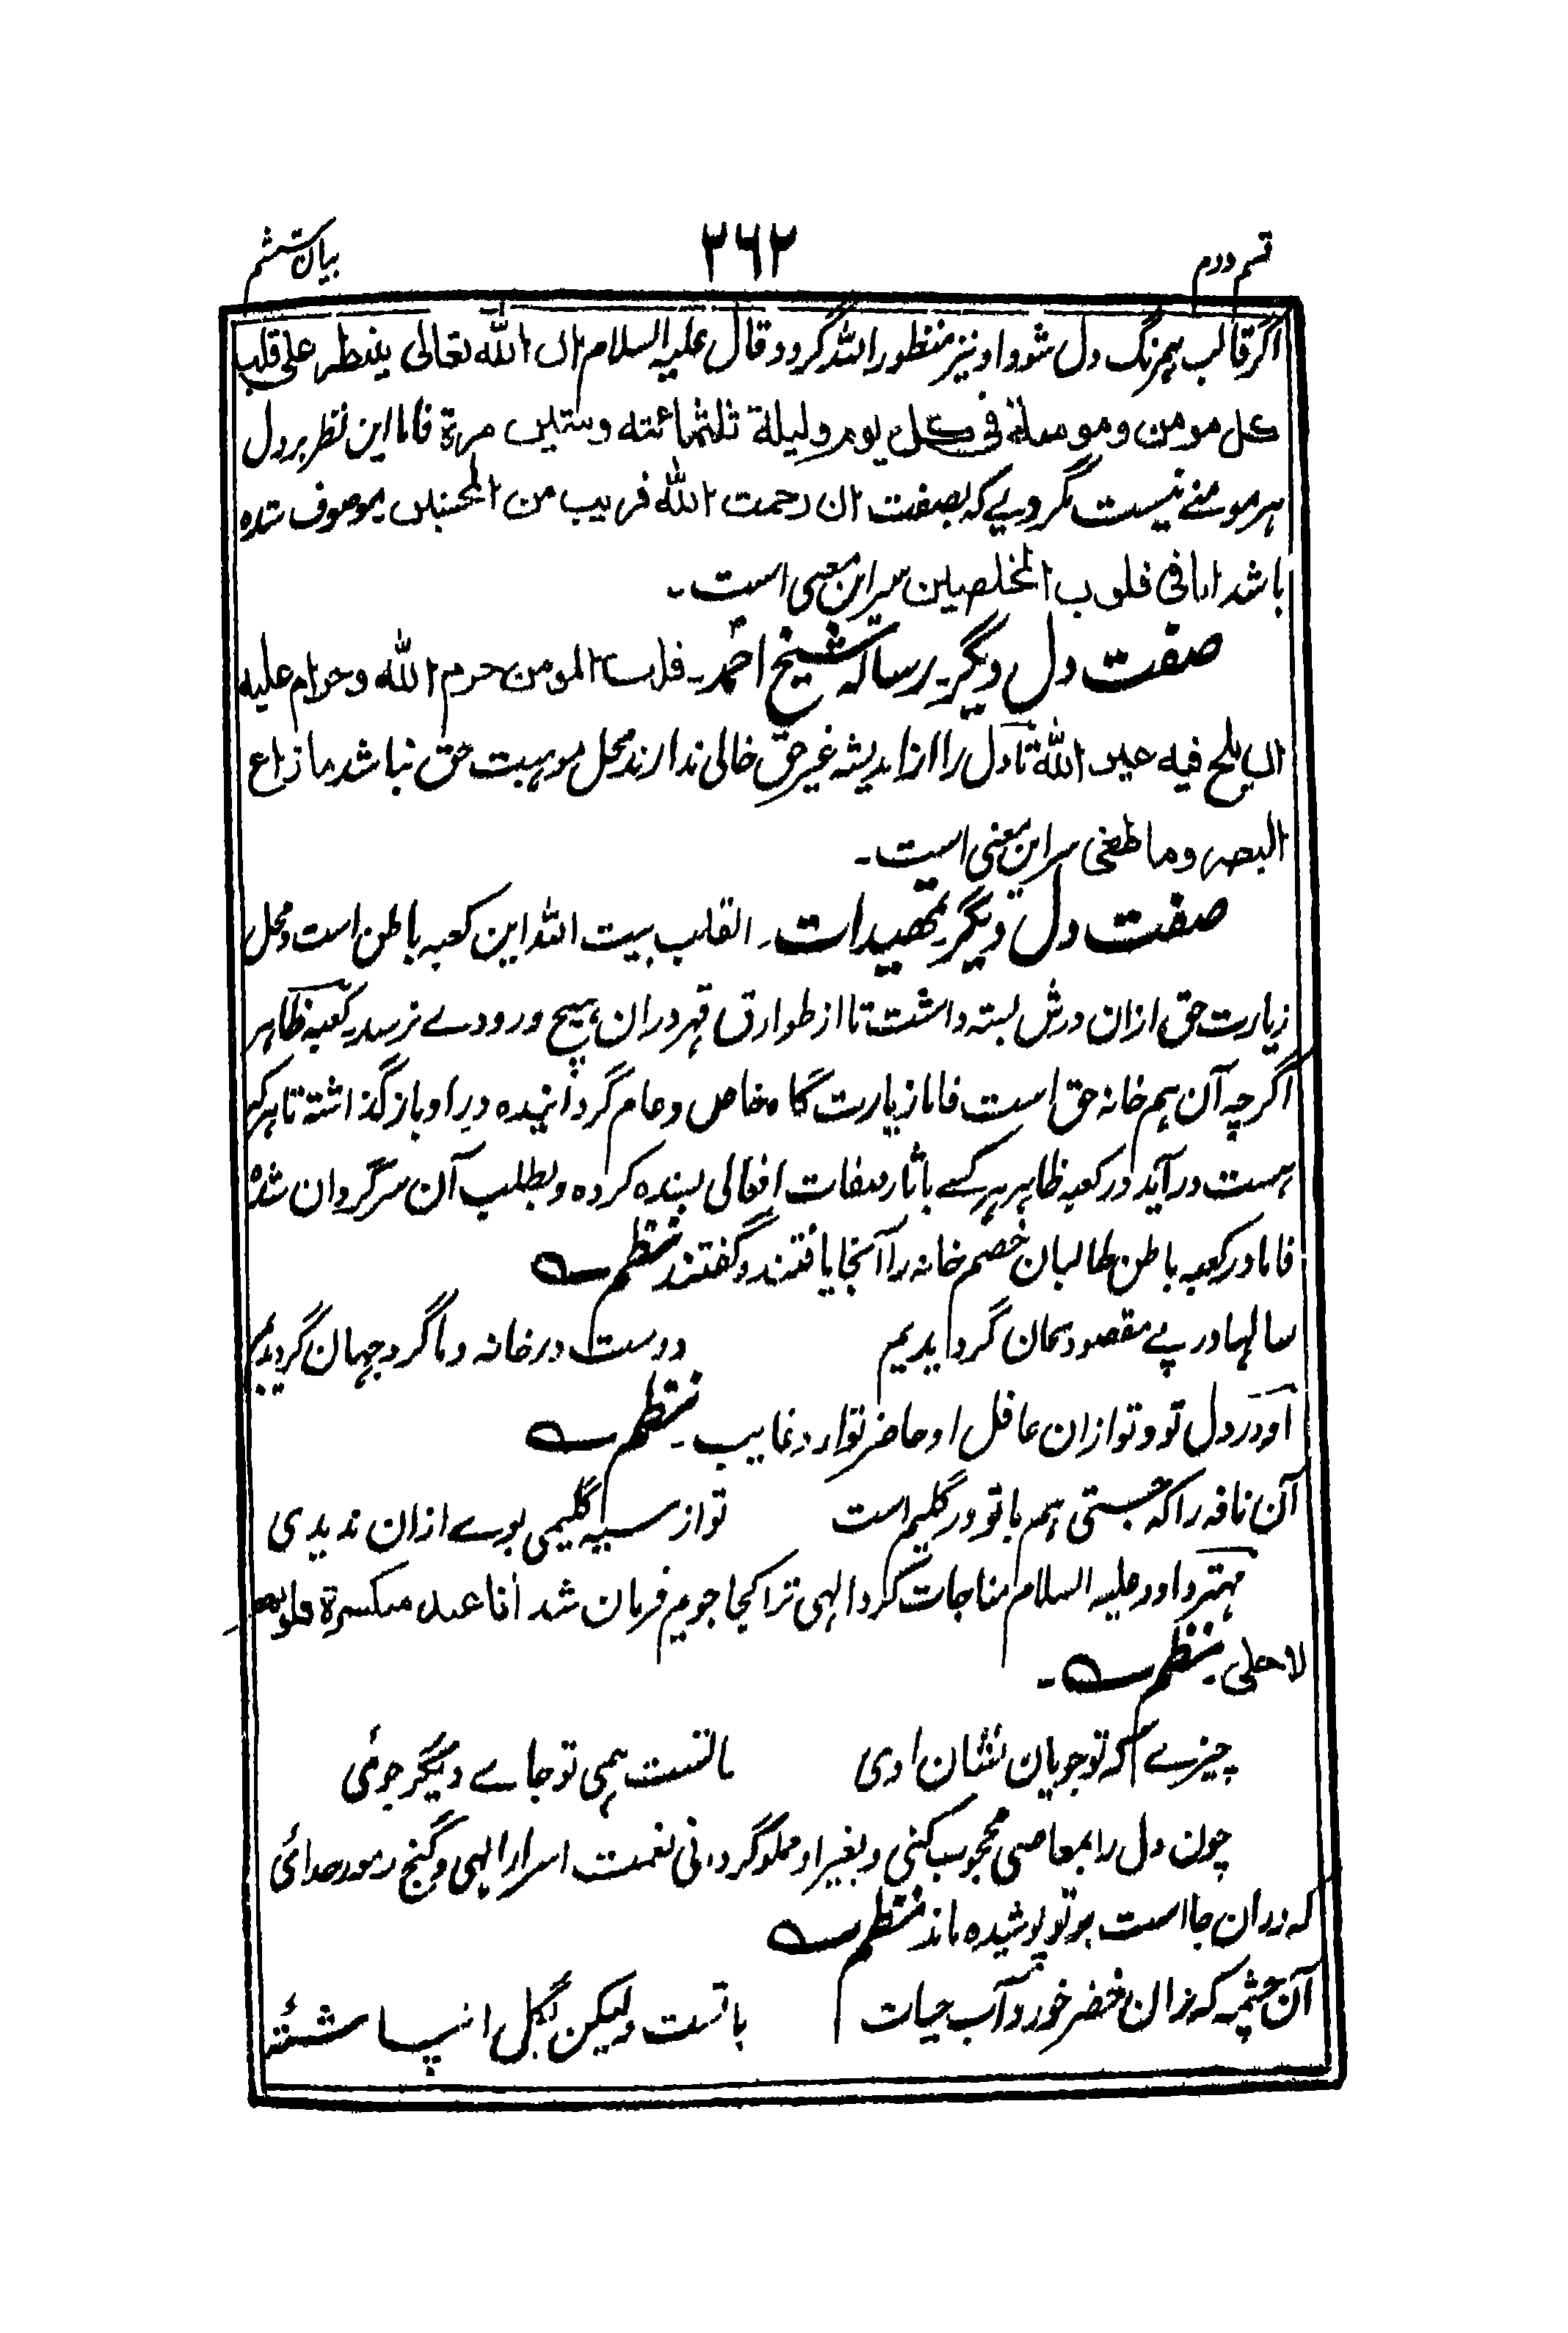 قسم دوم ۲۶۲ بیان ششم
اگر قالب ہمرنگ دل شود او نیز منظور اللہ گردد و قال علیہ السلام ان الله تعالی ینظر علی قلب
کل مومن و مومنة فی کل یوم و لیلة ثلثمائته وستین مرة فاما این نظر بر دل
ہر مومنے نیست مگر دلے کہ بصفت ان رحمت الله قریب من المحسنین موصوف شده
باشد انا فی قلوب المخلصین سر این معنی است۔
صفت دل دیگر۔ رسالہ شیخ احمد۔ قلب المومن حرم الله وحرام علیه
ان یلج فیه غیر الله تا دل را از اندیشہ غیر حق خالی ندارند محل موہبت حق نباشد ما زاغ
البصر وما طغی سر این معنی است۔
صفت دل دیگر۔ تمھیدات۔ القلب بیت اللہ این کعبہ باطن است و محل
زیارت حق ازان درش بستہ داشت تا از طوارق قہر دران ہیچ ورودے نرسد۔ کعبہ ظاہر
اگرچہ آن ہم خانہ حق است فاما زیارت گاہ خاص و عام گردانیده در او باز گذاشتہ تا ہر کہ
ہست درآید در کعبہ ظاہر ہر کسے باثار صفات افعالی بسنده کرده و بطلب آن سرگردان شده
فاما در کعبہ باطن طالبان خصم خانہ را آنجا یافتند و گفتند نظم
سالہا در پے مقصود بجان گردیدیم دوست در خانہ و ما گرد جہان گردیدیم
او در دل تو و تو ازان غافل او حاضر تو ازو غایب۔ نظم
آن نافہ را کہ جستی ہم با تو در گلیم است تو از سیہ گلیمی بوے ازان ندیدی
مہتر داود علیہ السلام مناجات کرد الہی ترا کجا جویم فرمان شد انا عند منکسرة قلوبھم
لاجلی۔ نظم۔
چیزے کہ تو جویان نشان اوی با تست ہمی تو جاے دیگر جوئی
چون دل را بمعاصی محجوب کنی و بغیر او مملو گردانی نعمت اسرار الہی و گنج رموز خدائی
کہ دران جا است بر تو پوشیده ماند نظم
آن چشمہ کہ زان خضر خورد آب حیات با تست ولیکن بگل انپاشتہ